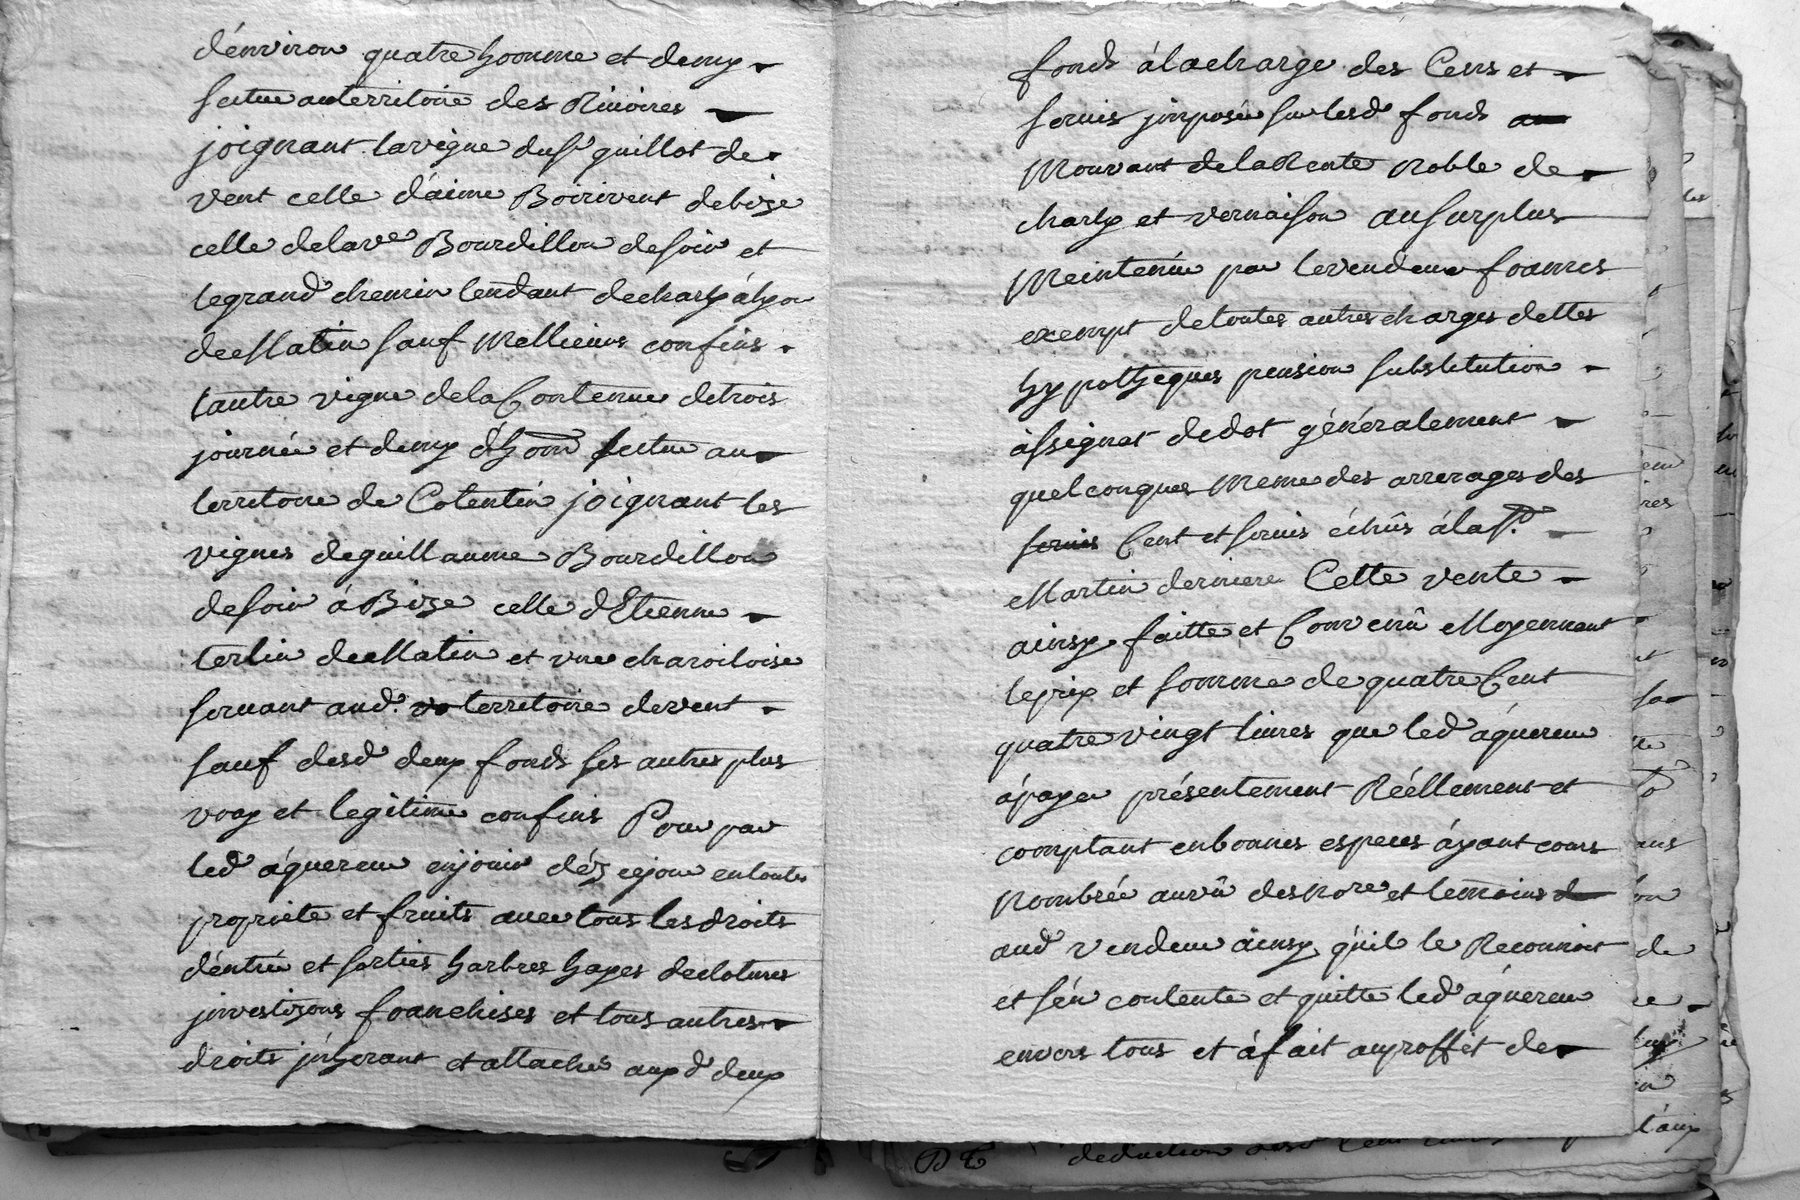 d'environ quatre hoomme et demy
scitue auterritoire des Rivoires
joignant lavigne dus.r guillot de
vent celle d'aime Boirivent debize
celle delave Bourdillon desoir et
legrand chemin tendant decharly àlyon
deMatin sauf Mellieurs confins
lautre vigne dela Contenue detrois
journée et demy d'hom scitue au
territoire de Cotentin joignant les
vignes deguillaume Bourdillon
desoir à Bize celle d'Etienne
terlin deMatin et une charoiloise
servant aud. territoire devent
sauf desd deux fonds ses autres plus
vray et legitime confins Pour par
led áquereur enjouir déz cejour entoute
propriete et fruits avec tous les droits
d'entrée et sorties harbres hayes declotures
jnvestizons franchises et tous autres
droits jnherant et attachés aux d deux
fonds álacharge des Cens et
servis jmposée sur lesd fonds
Mouvant delaRente Noble de
charly et vernaison ausurplus
Meintenüe par levendeur francs
exempt detoutes autres charges dettes
hypothèques pension substitution
ássignat dedot généralement
quelconques Meme des arrerages des
servis Cent et servis échûs álaS.t
Martin derniere Cette vente
ainsy faitte et Convenû Moyennant
leprix et somme de quatre Cent
quatre vingt livres que led áquereur
ápayer présentement Réellement et
comptant enbonnes especes áyant cours
Nombrée auvû des Nore et temoins
aud vendeur áinsy qu'il le Reconnoit
et s'én contente et quitte led áquereur
envers tous et áfait auproffit de